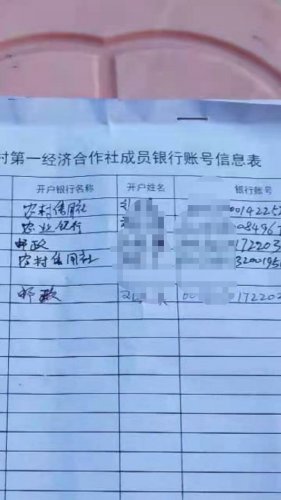 村第一经济合作社成员银行账号信息表
开户银行名称 开户姓名 银行账号
农村信用社 0014225
农业银行 08496
邮政 172203
农村信用社 3200195
邮政 00 0172202